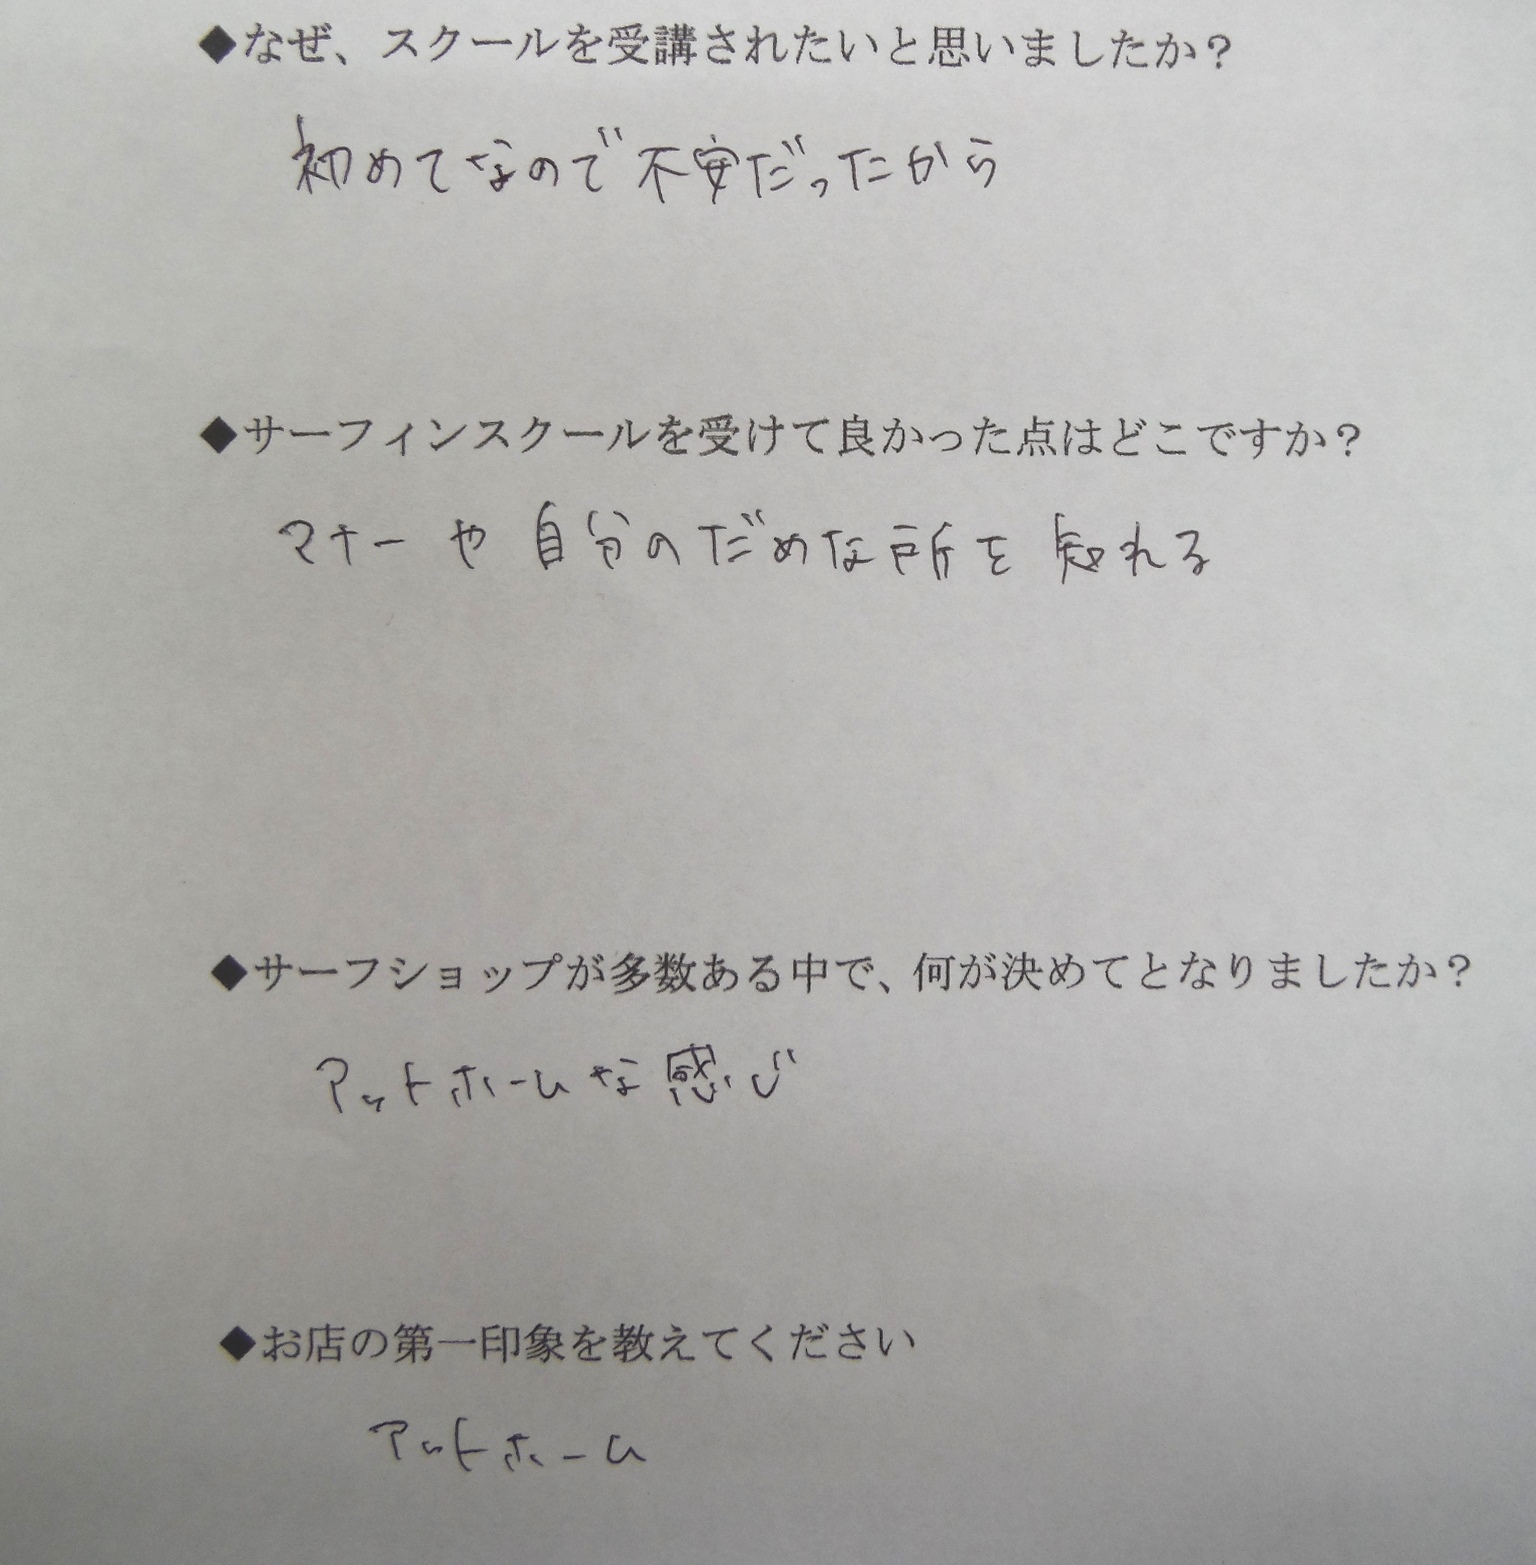 ◆なぜ、スクールを受講されたいと思いましたか？
初めてなので不安だったから
◆サーフィンスクールを受けて良かった点はどこですか？
マナーや自分のだめな所を知れる
◆サーフショップが多数ある中で、何が決めてとなりましたか？
アットホームな感じ
◆お店の第一印象を教えてください
アットホーム